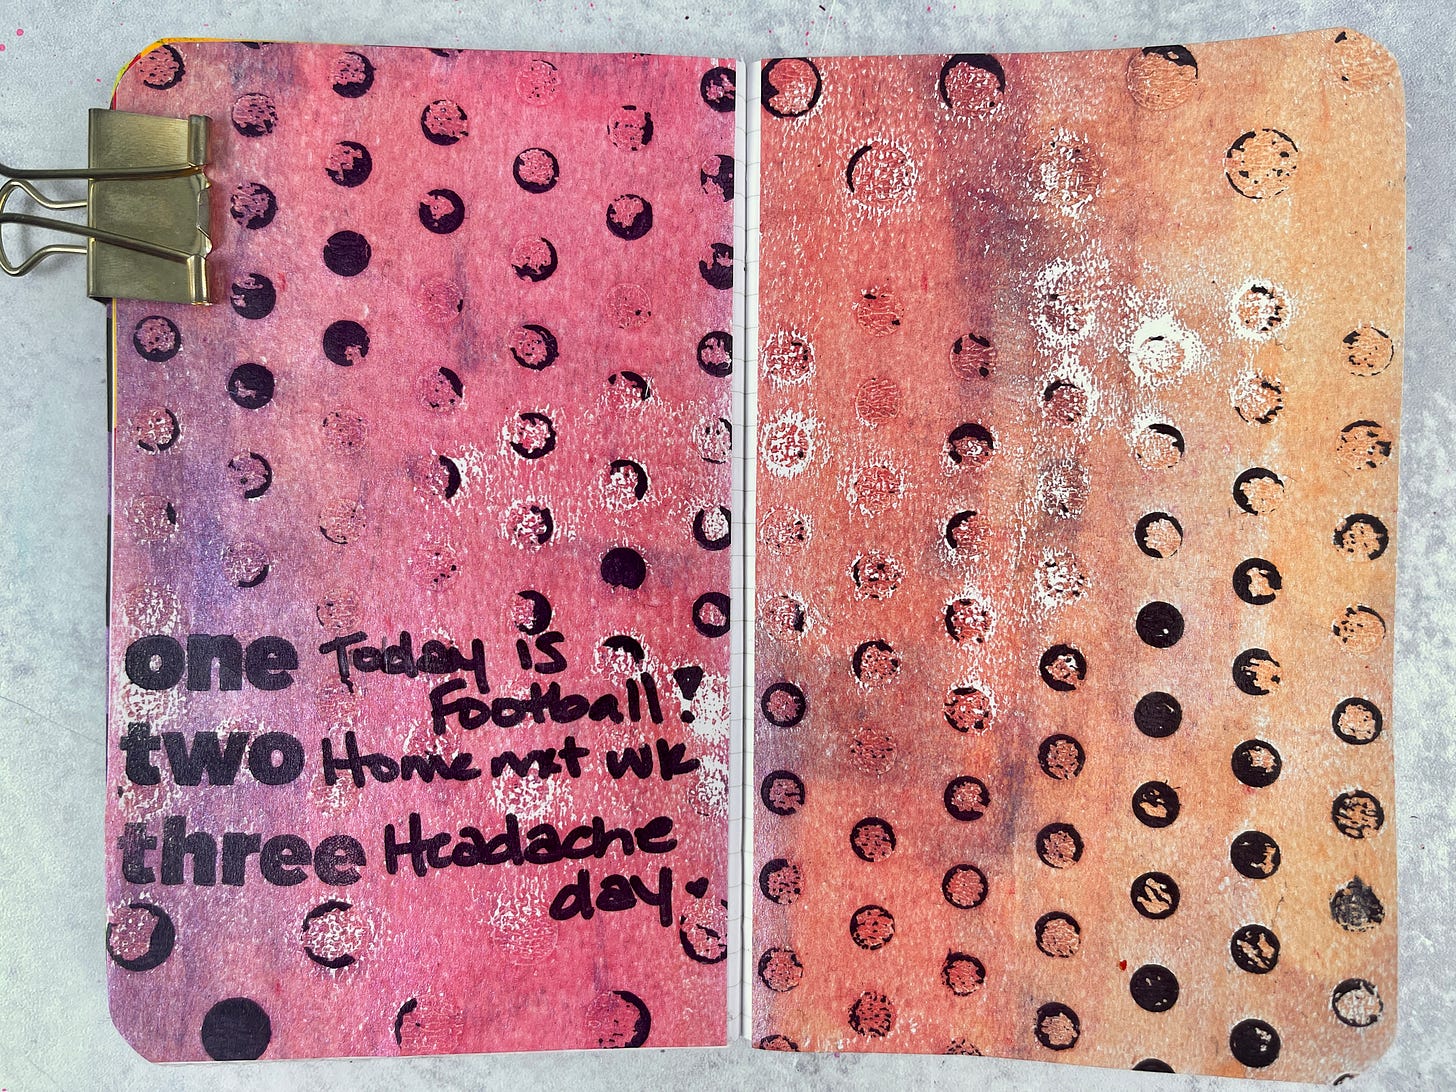 one Today is
Football!
two Home nxt wk
three Headache
day.